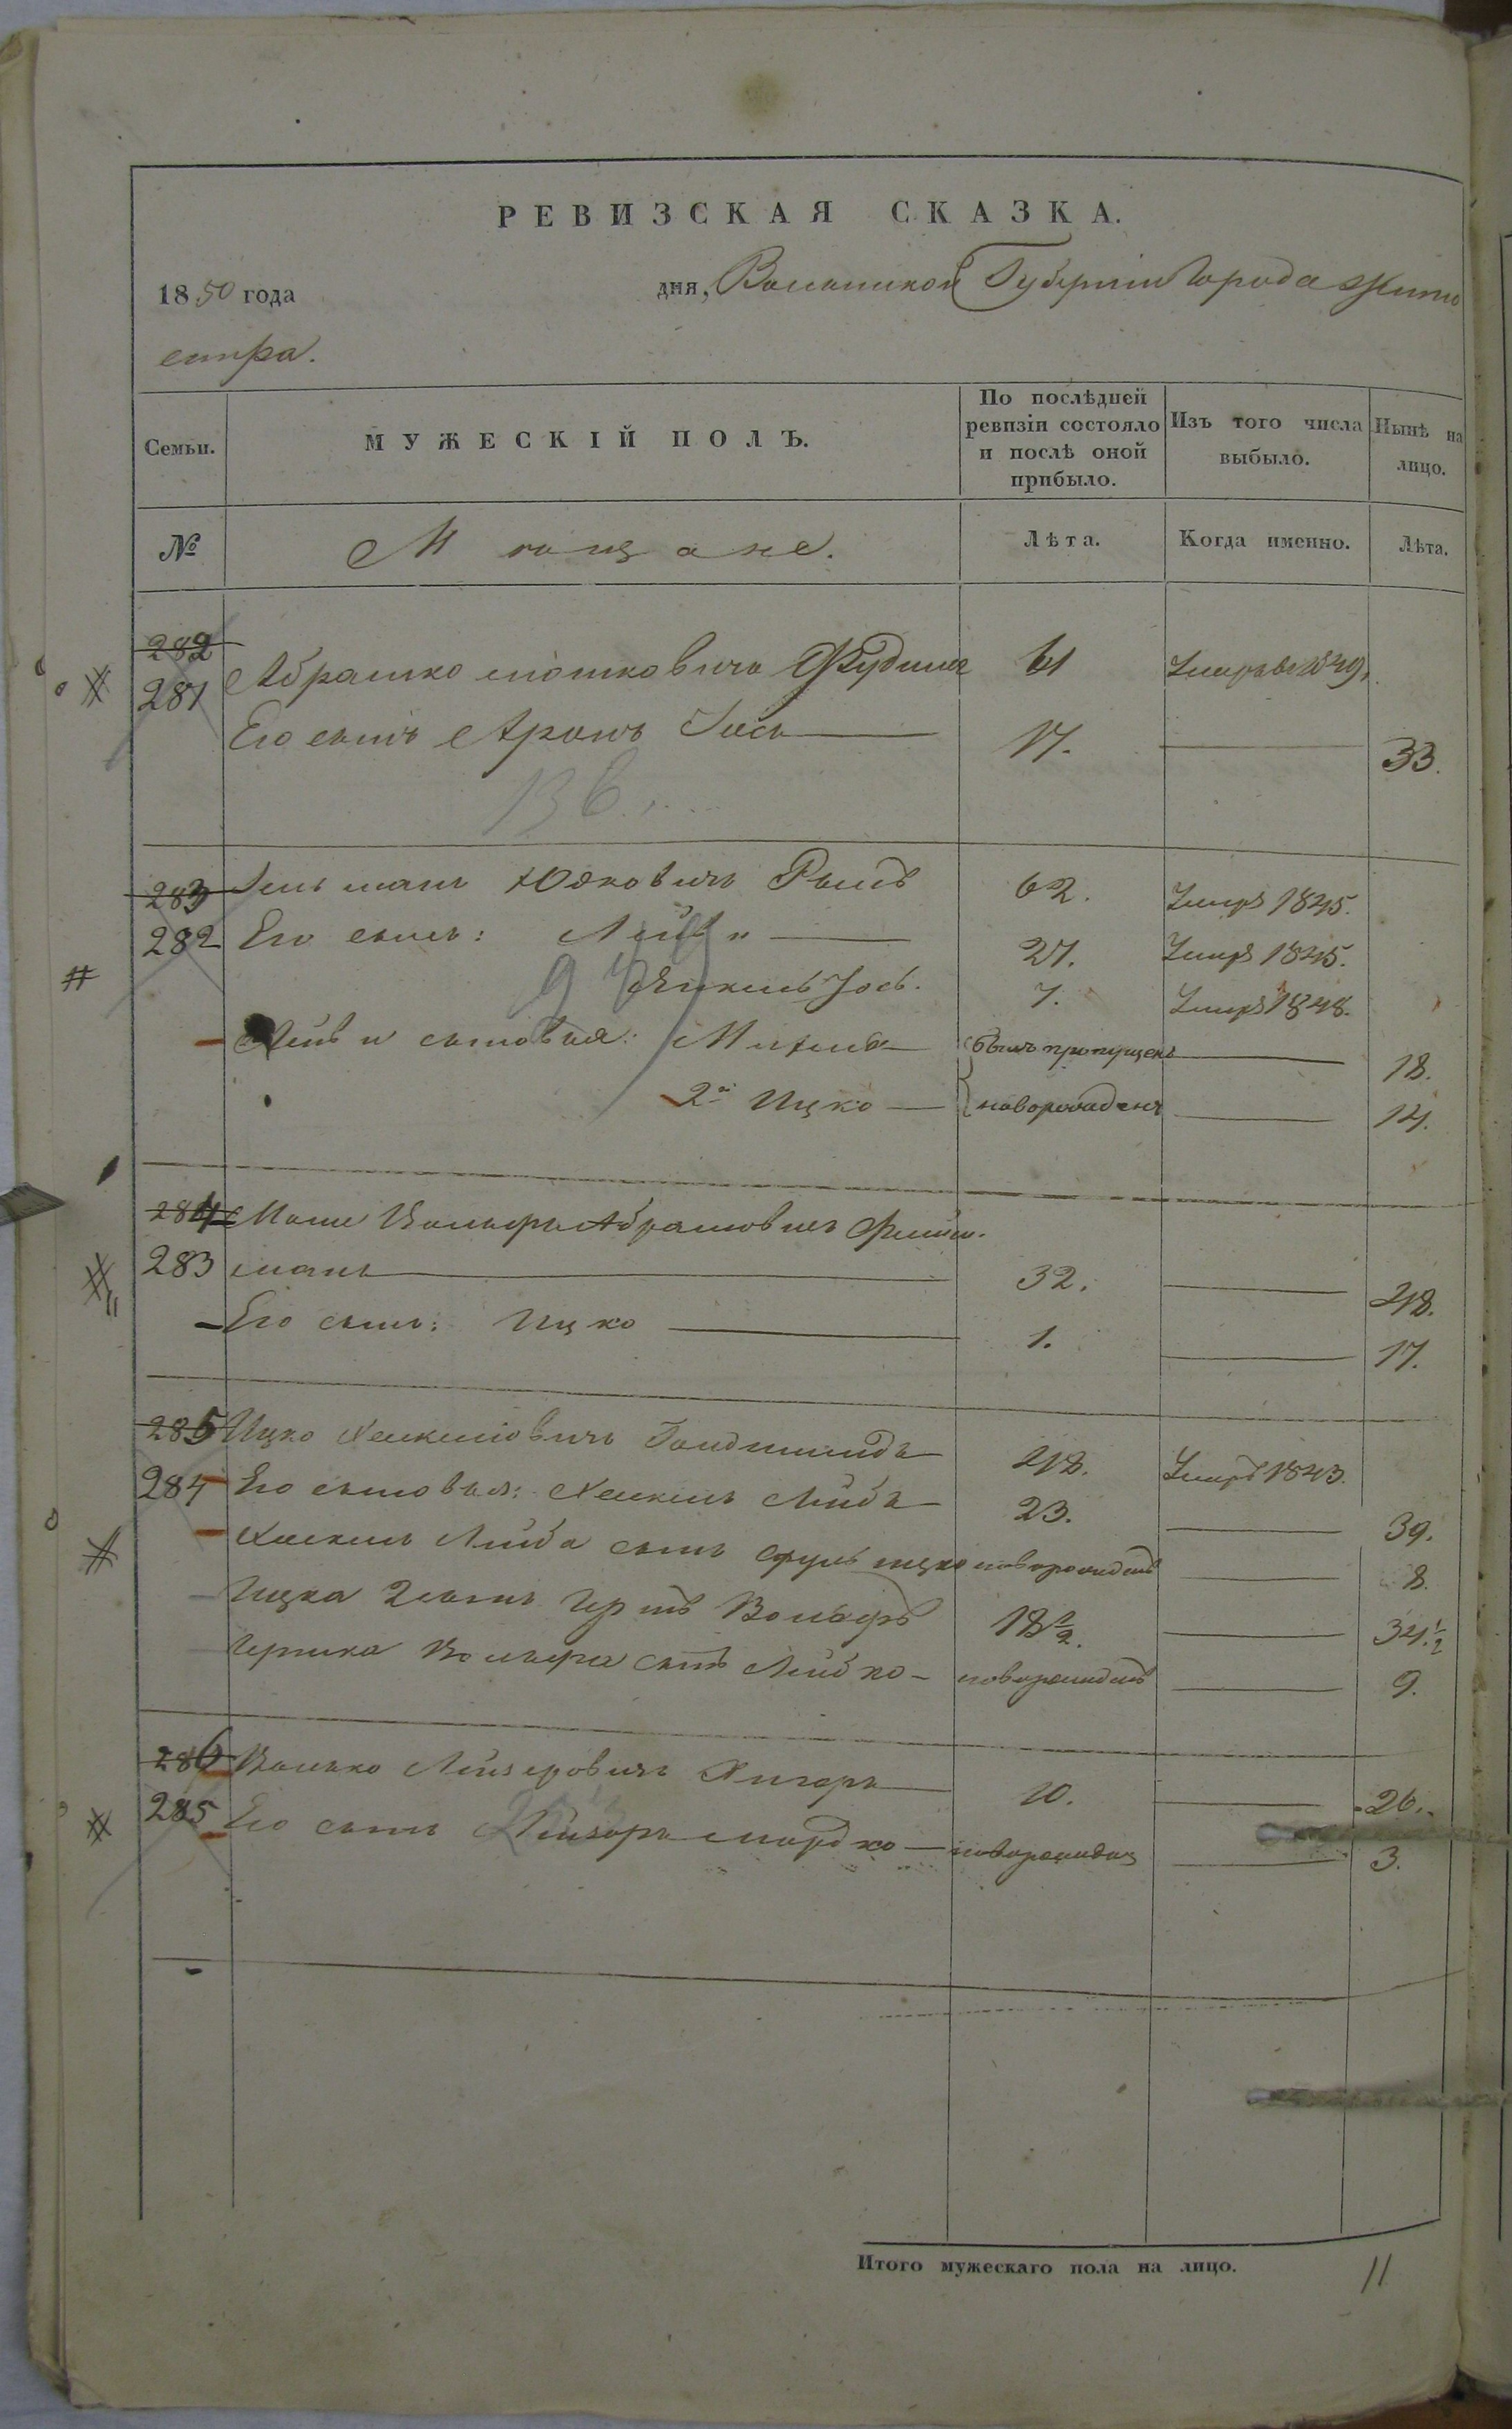 РЕВИЗСКАЯ СКАЗКА.
1850 года дня, Волынской Губерніи Города Жито
мира.
Семьи. МУЖЕСКІЙ ПОЛЪ. По послѣдней ревизіи состояло и послѣ оной прибыло. Изъ того числа выбыло. Нынѣ на лицо.
№ Мѣщане. Лѣта. Когда именно. Лѣта.
282
281 Абрамко Мошковичъ 61 Умеръ въ 1849,
Его сынъ Аронъ Іось 17. 33.
136.
283 Юдковичъ 62. Умръ 1845.
282 Его сынъ: Лейба 27. Умръ 1845.
Янкель Іось. 7. Умръ 1848.
Лейби сыновья: Михель былъ пропущенъ 18.
2й Ицко новорожденъ 14.
284 Моше Вольфъ Абрамовичъ
283 манъ 32. 48.
Его сынъ: Ицко 1. 17.
285 Ицко Хаскелевичъ 48. Умръ 1843.
284 Его сыновья: Хаскель Лейба 23. 39.
Хаскель Лейба сынъ новорожденъ 8.
Ицка 2 сынъ Вольфъ 18½. 34.½
Вольфа сынъ Лейбко новорожденъ 9.
286 Волько Лейзеровичъ 10. 26.
285 Его сынъ Лейзоръ Мордко новорожден 3.
Итого мужескаго пола на лицо. 11